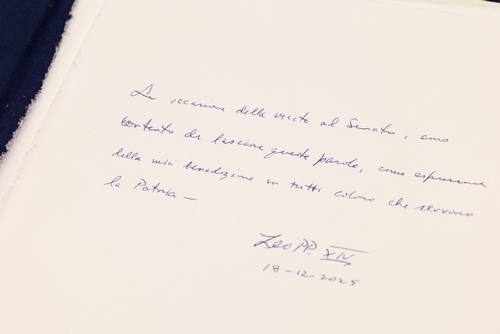 In occasione della visita al Senato, sono
contento di lasciare queste parole, come espressione
della mia benedizione su tutti coloro che servono
la Patria —
Leo PP. XIV
18-12-2025